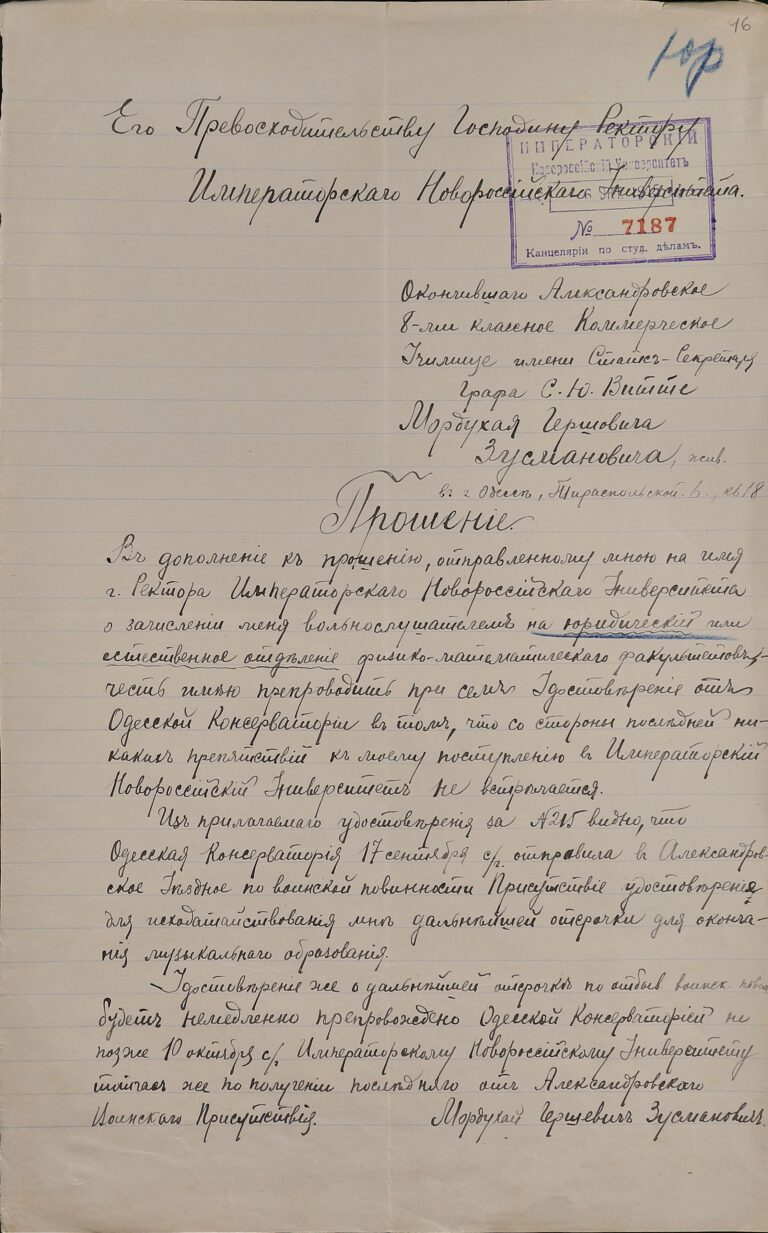 16
Юр
Его Превосходительству Господину Ректору
ИМПЕРАТОРСКІЙ
Новороссійскій Университетъ
Императорскаго Новороссійскаго Университета.
№ 7187
Канцеляріи по студ. дѣламъ.
Окончившаго Александровское
8-ми классное Коммерческое
Училище имени Статсъ-Секретаря
Графа С. Ю. Витте
Мордухая Гершовича
Зусмановича, жив.
въ г. Одессѣ, Тираспольской 6., кв 18
Прошеніе.
Въ дополненіе къ прошенію, отправленному мною на имя
г. Ректора Императорскаго Новороссійскаго Университета
о зачисленіи меня вольнослушателемъ на юридическій или
естественное отдѣленіе физико-математическаго факультетовъ,
честь имѣю препроводить при семъ Удостовѣреніе отъ
Одесской Консерваторіи въ томъ, что со стороны послѣдней ни-
какихъ препятствій къ моему поступленію въ Императорскій
Новороссійскій Университетъ не встрѣчается.
Изъ прилагаемаго удостовѣренія за №215 видно, что
Одесская Консерваторія 17 сентября с/г. отправила въ Александров-
ское Уѣздное по воинской повинности Присутствіе удостовѣренія
для исходатайствованія мнѣ дальнѣйшей отсрочки для оконча-
нія музыкальнаго образованія.
Удостовѣреніе же о дальнѣйшей отсрочкѣ по отбыв воинск. повин
будетъ немедленно препровождено Одесской Консерваторіей не
позже 10 октября с/г Императорскому Новороссійскому Университету
тотчасъ же по полученіи послѣдняго отъ Александровскаго
Воинскаго Присутствія. Мордухай Гершевичъ Зусмановичъ.